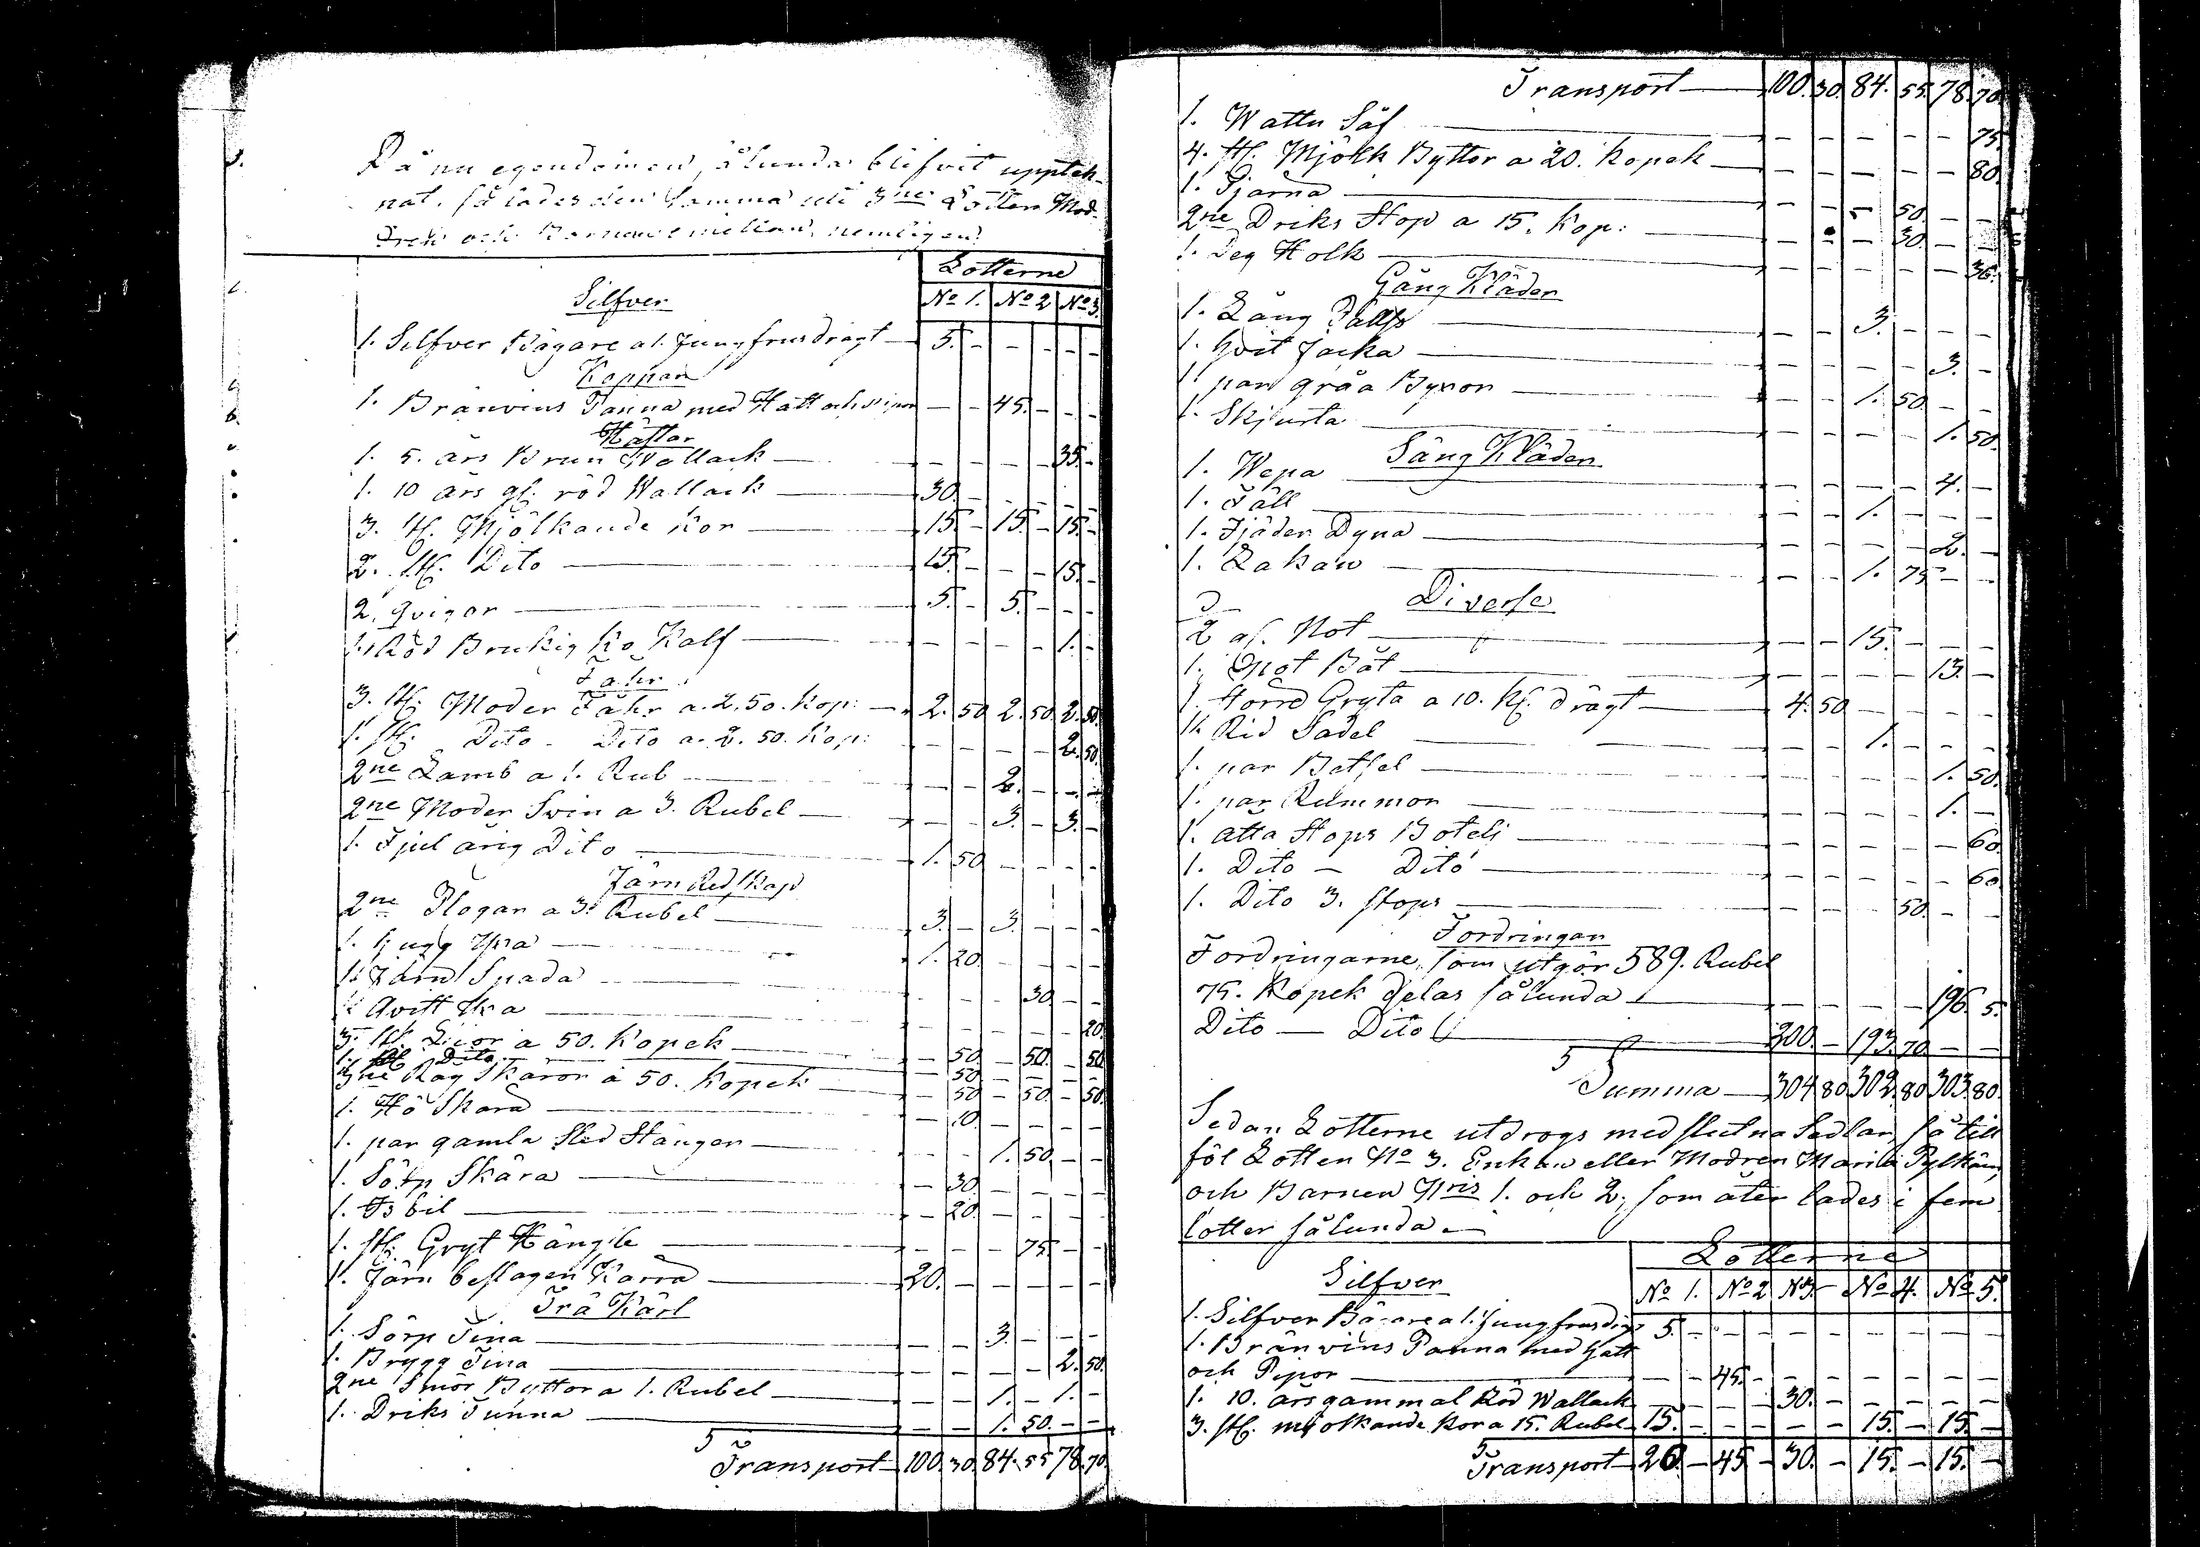 Då nu egendomen sålunda blifvit upptek-
nat, så lades den Samma uti 3ne Lotter Mod-
ren och Barnen emellan, nemligen:
Lotterne
Silfver No 1. No 2 No 3.
1. Silfver Bägare a 1. Jungfrusdragt 5. - - - - -
Koppar
1. Bränvins Panna med Hatt och Pipor - - 45. - - -
Hästar
1. 5. års Brun Wallack - - - - 35. -
1. 10 års gl. röd Wallack 30. - - - - -
3. st. Mjölkande Kor 15. - 15. - 15. -
2. st. Dito 15. - - - 15. -
2. Qvigor 5. - 5. - - -
1. Röd Brukig Ko Kalf - - - - 1. -
Fåhr
3. st. Moder Fåhr a. 2. 50. Kop: 2. 50 2. 50 2. 50.
1. st. Dito - Dito a. 2. 50. Kop: - - - - 2. 50.
2ne Lamb a 1. Rub - - 2. - - -
2ne Moder Svin a 3. Rubel - - 3. - 3. -
1. Fjul årig Dito 1. 50 - - - -
Järn Redskap
2ne Plogar a 3. Rubel 3. - 3. - - -
1. Hugg Yxa 1. 20. - - - -
1. Järn Spada - - - 30 - -
1. Qvist Yxa - - - - - 20.
3. st. Liior a 50. Kopek - 50. - 50. - 50
1. st. Dito - 50. - - - -
3ne Råg Skäror á 50. Kopek - 50 - 50 - 50.
1. Hö Skära - 10. - - - -
1. par gamla Sled Stänger - - 1. 50. - -
1. Sörp Skära - 30. - - - -
1. Is bil - 20. - - - -
1. st. Gryt Hängile - - - 75. - -
1. Järn beslagen Kärra 20. - - - - -
Trä Kärl
1. Sörp Tina - - 3. - - -
1. Brygg Tina - - - - 2. 50.
2ne Smör Byttor a 1. Rubel - - 1. - 1. -
1. Driks Tunna - - 1. 50. - -
Transport 100. 30. 84. 55 78. 70.
Transport 100. 30. 84. 55. 78. 70.
1. Wattu Så - - - - - 75
4. st. Mjölk Byttor a 20. Kopek - - - - - 80.
1. - - - 50. - -
2ne Driks Stop a 15. Kop: - - - 30. - -
1. Deg Holk - - - - - 36.
Gång Kläder
1. Lång - - 3. - - -
1. Hvit Jacka - - - - 3. -
1. par gråa Byxor - - 1. 50. - -
1. Skjurta - - - - 1. 50.
Säng Kläder
1. Wepa - - - - 4. -
1. Fäll - - 1. - - -
1. Fjäder Dyna - - - - 2. -
1. Lakan - - 1. 75 - -
Diverse
2 af. Not - - 15. - - -
1. Not Båt - - - - 13. -
1. Större Gryta a 10. K. drägt 4. 50 - - - -
1. Rid Sadel - - 1. - - -
1. par Betsel - - - - 1. 50.
1. par Remmor - - - - 1. -
1. Åtta Stops Botelj - - - - - 60.
1. Dito - Dito - - - - - 60.
1. Dito 3. Stops - - - 50. - -
Fordringar
Fordringarne, som utgör 589. Rubel
75. Kopek delas sålunda - - - - 196. 5.
Dito - Dito 200. - 193. 70 - -
Summa 304 80. 302. 80 303. 80.
Sedan Lotterne utdrogs med slutna Sedlar, så till
föl Lotten No 3. Enkan eller Modren Maria Pylkäin,
och Barnen Nris 1. och 2, som åter lades i fem
lotter sålunda
Lotterne
Silfver No 1. No 2 No 3. No 4. No 5.
1. Silfver Bägare a 1. Jungfrusdrgt 5. - - - - - - - - -
1. Bränvins Panna med Hatt
och Pipor - - 45. - - - - - - -
1. 10. års gammal Röd Wallack - - - - 30. - - - - -
3. st. mjölkande Kor a 15. Rubel 15. - - - - - 15. - 15. -
Transport 20. - 45. - 30. - 15. - 15. -